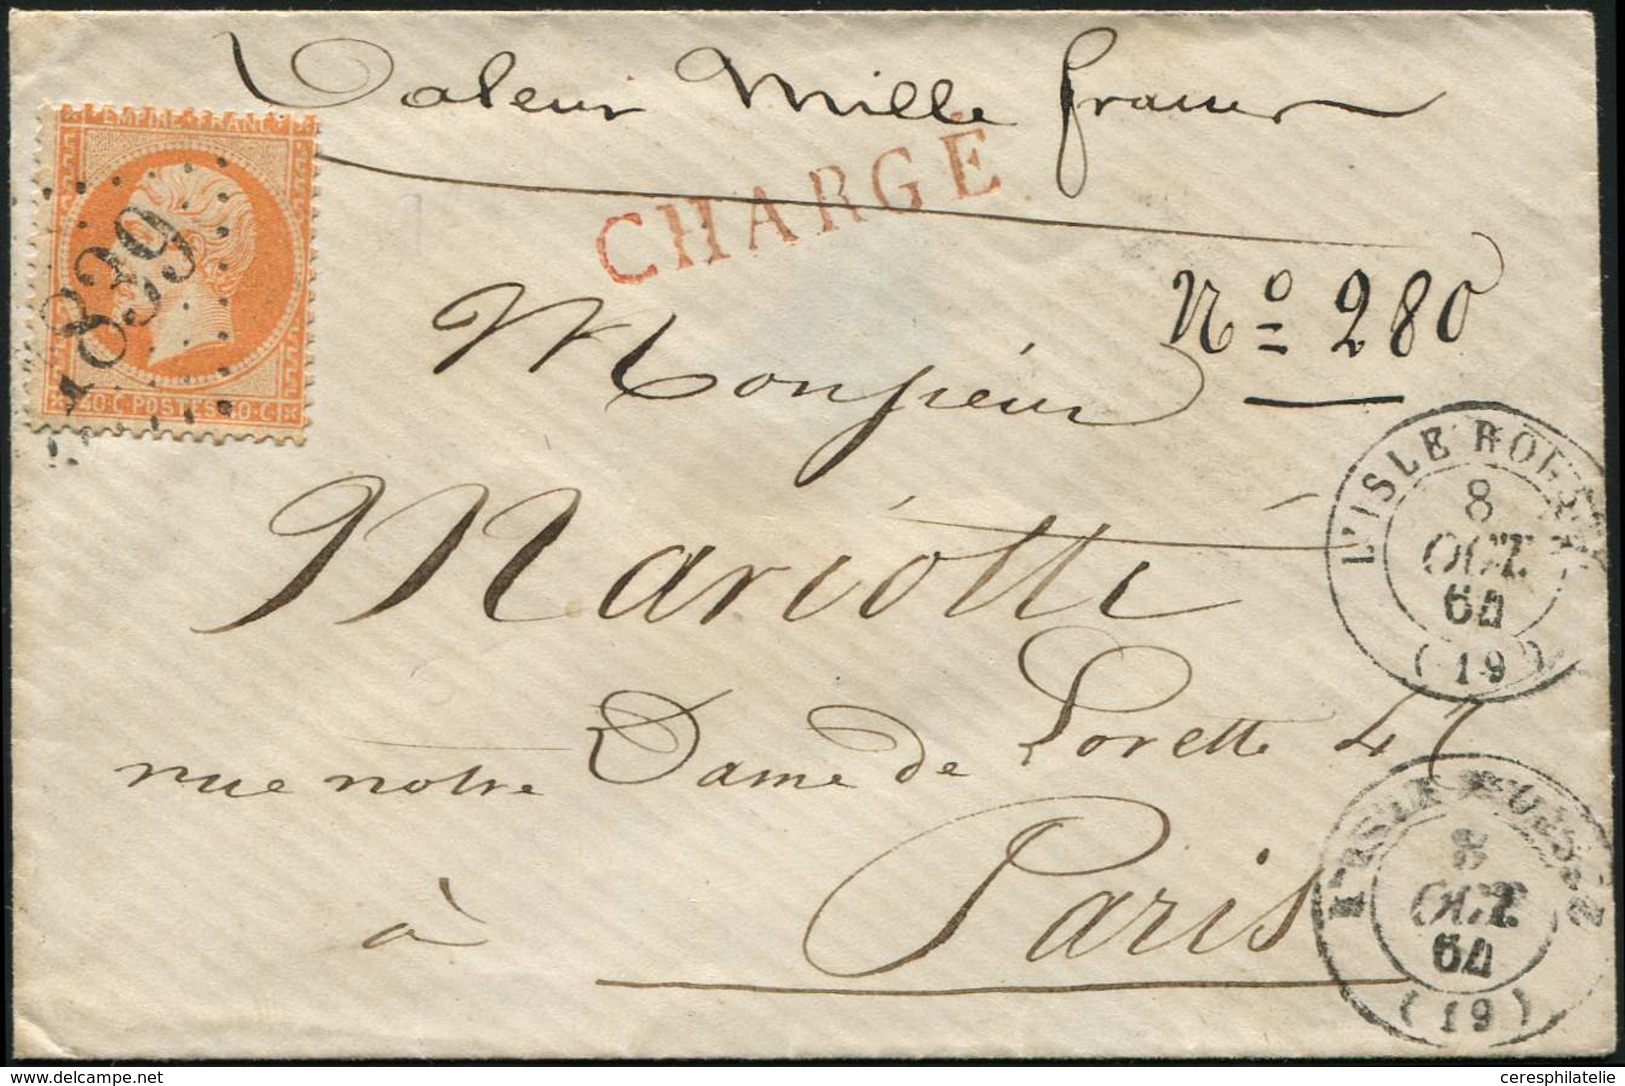 Valeur Mille francs
EMPIRE FRANC
1839
40·C POSTES 40·C
CHARGÉ
Nº 280
Monsieur
Mariotti
rue notre Dame de Lorette 47
à Paris
L'ISLE ROUSSE
8
OCT.
64
(19)
L'ISLE ROUSSE
8
OCT.
64
(19)
delcampe.net
ceresphilatelie